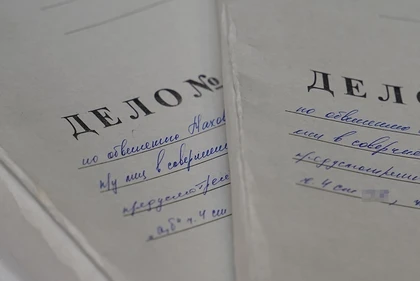 ДЕЛО №
по обвинению Нахо
п/у лиц в соверше
предусмотрен
"а,б" ч. 4 ст
ДЕЛО
по обвинению
лиц в соверше
предусмотренн
ч. 4 ст